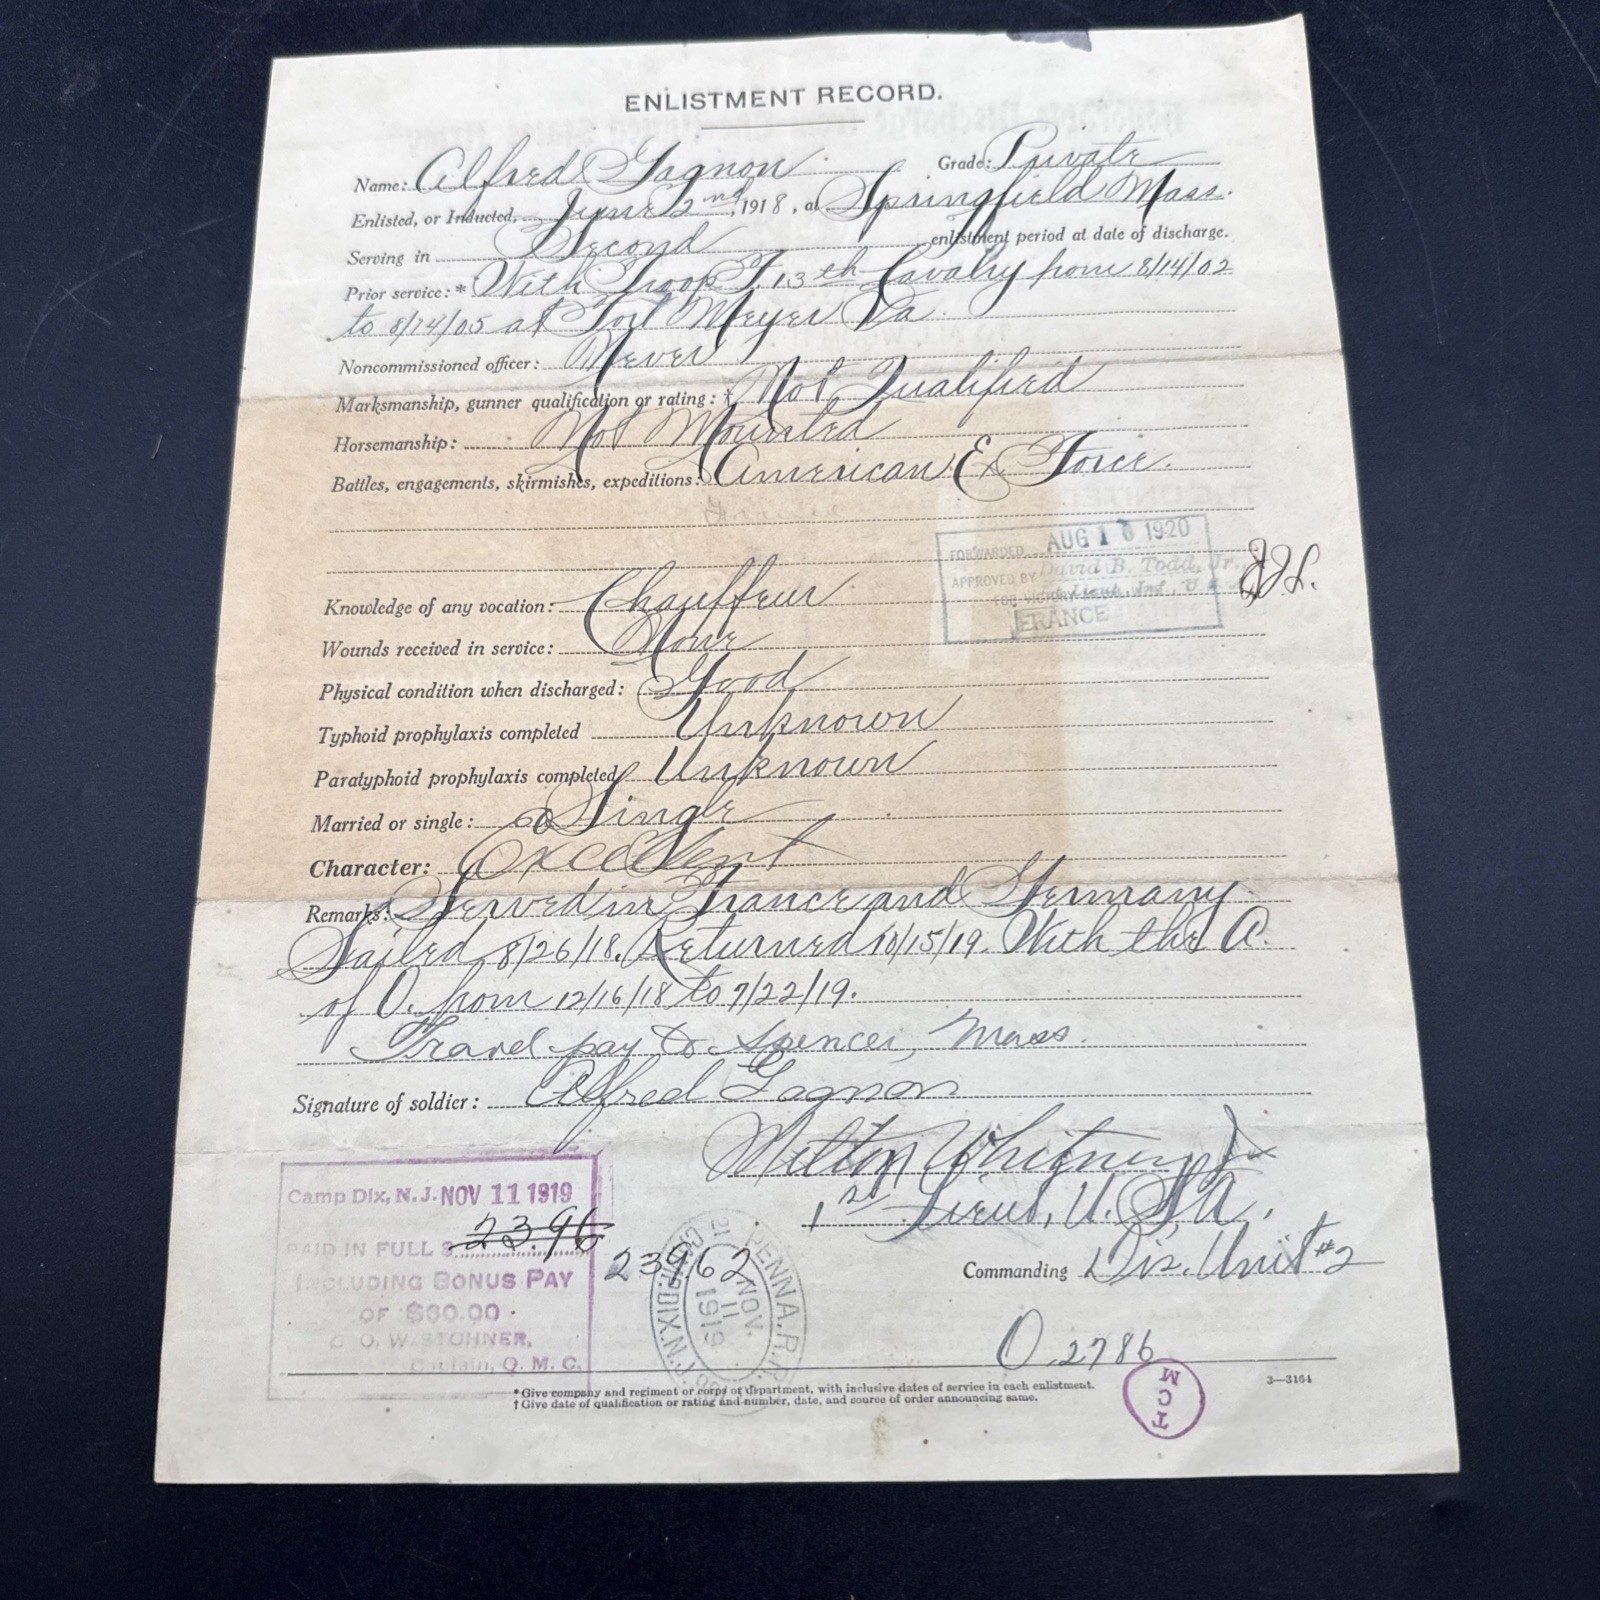 ENLISTMENT RECORD.
Name: Alfred Gagnon Grade: Private
Enlisted, or Inducted, June 2nd, 1918, at Springfield Mass.
Serving in Second enlistment period at date of discharge.
Prior service:* With Troop F. 13th Cavalry from 8/14/02
to 8/14/05 at Fort Meyer Va.
Noncommissioned officer: Never
Marksmanship, gunner qualification or rating:† Not Qualified
Horsemanship: Not Mounted
Battles, engagements, skirmishes, expeditions: American Ex Force.
FORWARDED AUG 1 1920
APPROVED BY David B. Todd, Jr.,
FOR VICTORY Lieut, Inf., U
FRANCE
Knowledge of any vocation: Chauffeur
Wounds received in service: None
Physical condition when discharged: Good
Typhoid prophylaxis completed Unknown
Paratyphoid prophylaxis completed Unknown
Married or single: Single
Character: Excellent
Remarks: Served in France and Germany
Sailed 8/26/18. Returned 10/15/19. With the A.
of O. from 12/16/18 to 7/22/19.
Travel pay to Spencer, Mass.
Signature of soldier: Alfred Gagnon
Milton Whitney Jr
1st Lieut, U.S.A.,
Commanding Dis. Unit #2
Camp Dix, N. J. NOV 11 1919
PAID IN FULL $ 23.96
239.62
INCLUDING BONUS PAY
OF $60.00
O. W. STOHNER,
Captain, Q. M. C.
PENNA. R. R.
NOV. 11 1919
CAMP DIX N. J.
O.2786
*Give company and regiment or corps or department, with inclusive dates of service in each enlistment.
3—3164
†Give date of qualification or rating and number, date, and source of order announcing same.
MCT